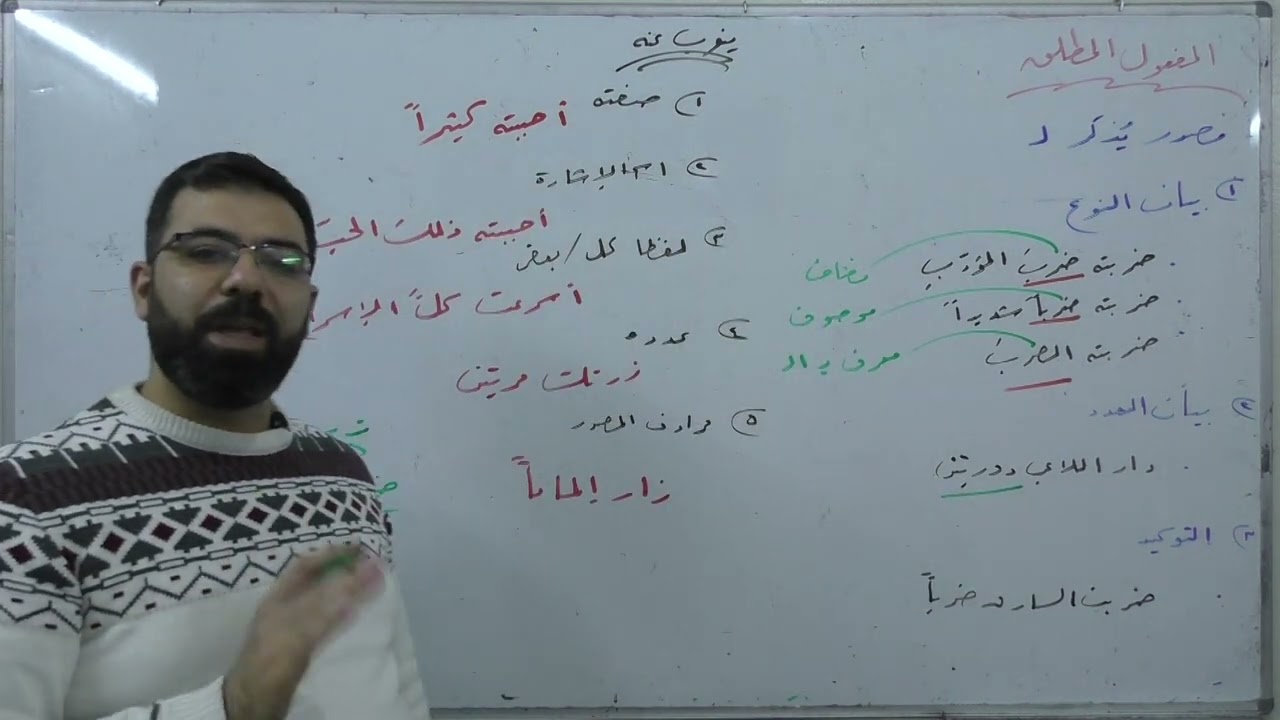 المفعول المطلق
مصدر يُذكر لـ
١ بيان النوع
. ضربته ضربَ المؤدّبِ مضاف
. ضربته ضرباً شديداً موصوف
. ضربته الضربَ معرف بـ ال
٢ بيان العدد
. دار اللاعب دورتين
٣ التوكيد
. ضربت السارق ضرباً
ينوب عنه
١ صفته
أحببته كثيراً
٢ اسم الإشارة
أحببته ذلكَ الحبَّ
٣ لفظا كل/بعض
أسرعت كلَّ
٤ عدده
زرتك مرتين
٥ مرادف المصدر
زار إلماماً